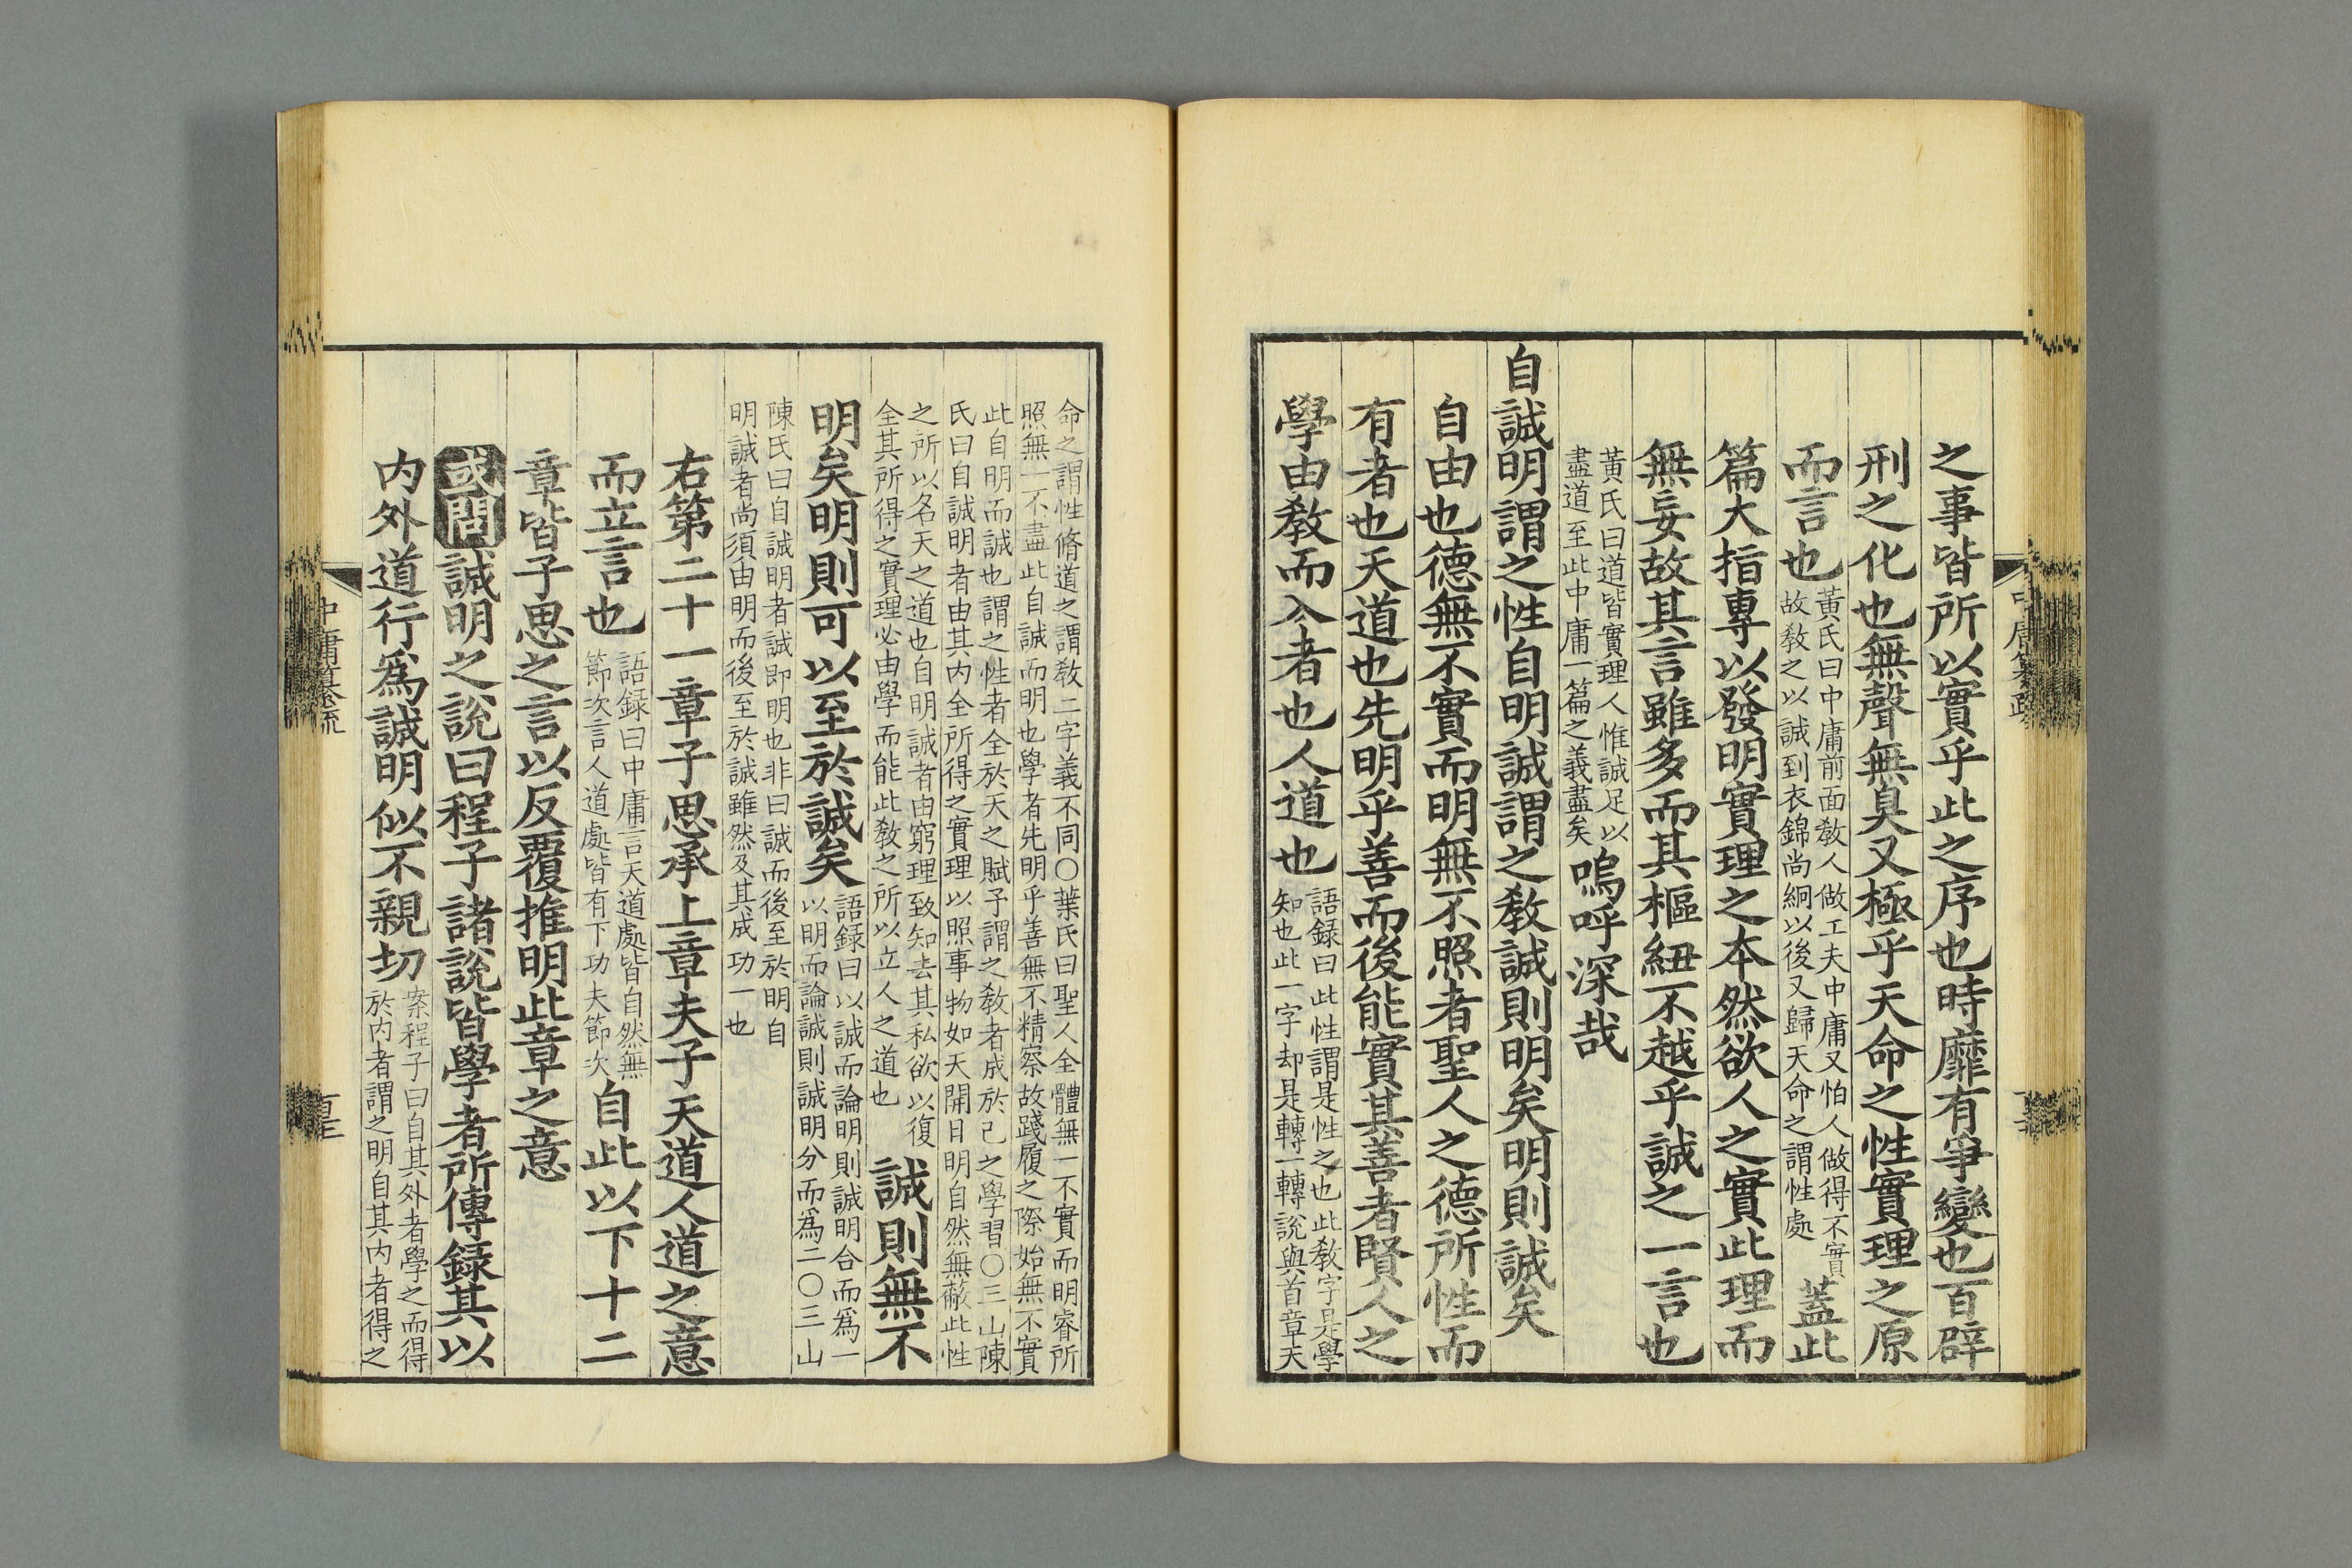 之事皆所以實乎此之序也時靡有爭變也百辟
刑之化也無聲無臭又極乎天命之性實理之原
而言也
黃氏曰中庸前面敎人做工夫中庸又怕人做得不實
故敎之以誠到衣錦尚絅以後又歸天命之謂性處
蓋此
篇大指專以發明實理之本然欲人之實此理而
無妄故其言雖多而其樞紐不越乎誠之一言也
黃氏曰道皆實理人惟誠足以
盡道至此中庸一篇之義盡矣
嗚呼深哉
自誠明謂之性自明誠謂之敎誠則明矣明則誠矣
自由也德無不實而明無不照者聖人之德所性而
有者也天道也先明乎善而後能實其善者賢人之
學由敎而入者也人道也
語録曰此性謂是性之也此敎字是學
知也此一字却是轉一轉說與首章天
命之謂性脩道之謂敎二字義不同○葉氏曰聖人全體無一不實而明睿所
照無一不盡此自誠而明也學者先明乎善無不精察故踐履之際始無不實
此自明而誠也謂之性者全於天之賦予謂之敎者成於己之學習○三山陳
氏曰自誠明者由其内全所得之實理以照事物如天開日明自然無蔽此性
之所以名天之道也自明誠者由窮理致知去其私欲以復
全其所得之實理必由學而能此敎之所以立人之道也
誠則無不
明矣明則可以至於誠矣
語録曰以誠而論明則誠明合而爲一
以明而論誠則誠明分而爲二○三山
陳氏曰自誠明者誠即明也非曰誠而後至於明自
明誠者尚須由明而後至於誠雖然及其成功一也
右第二十一章子思承上章夫子天道人道之意
而立言也
語録曰中庸言天道處皆自然無
節次言人道處皆有下功夫節次
自此以下十二
章皆子思之言以反覆推明此章之意
或問誠明之說曰程子諸說皆學者所傳録其以
内外道行爲誠明似不親切
案程子曰自其外者學之而得
於内者謂之明自其内者得之
中庸纂疏